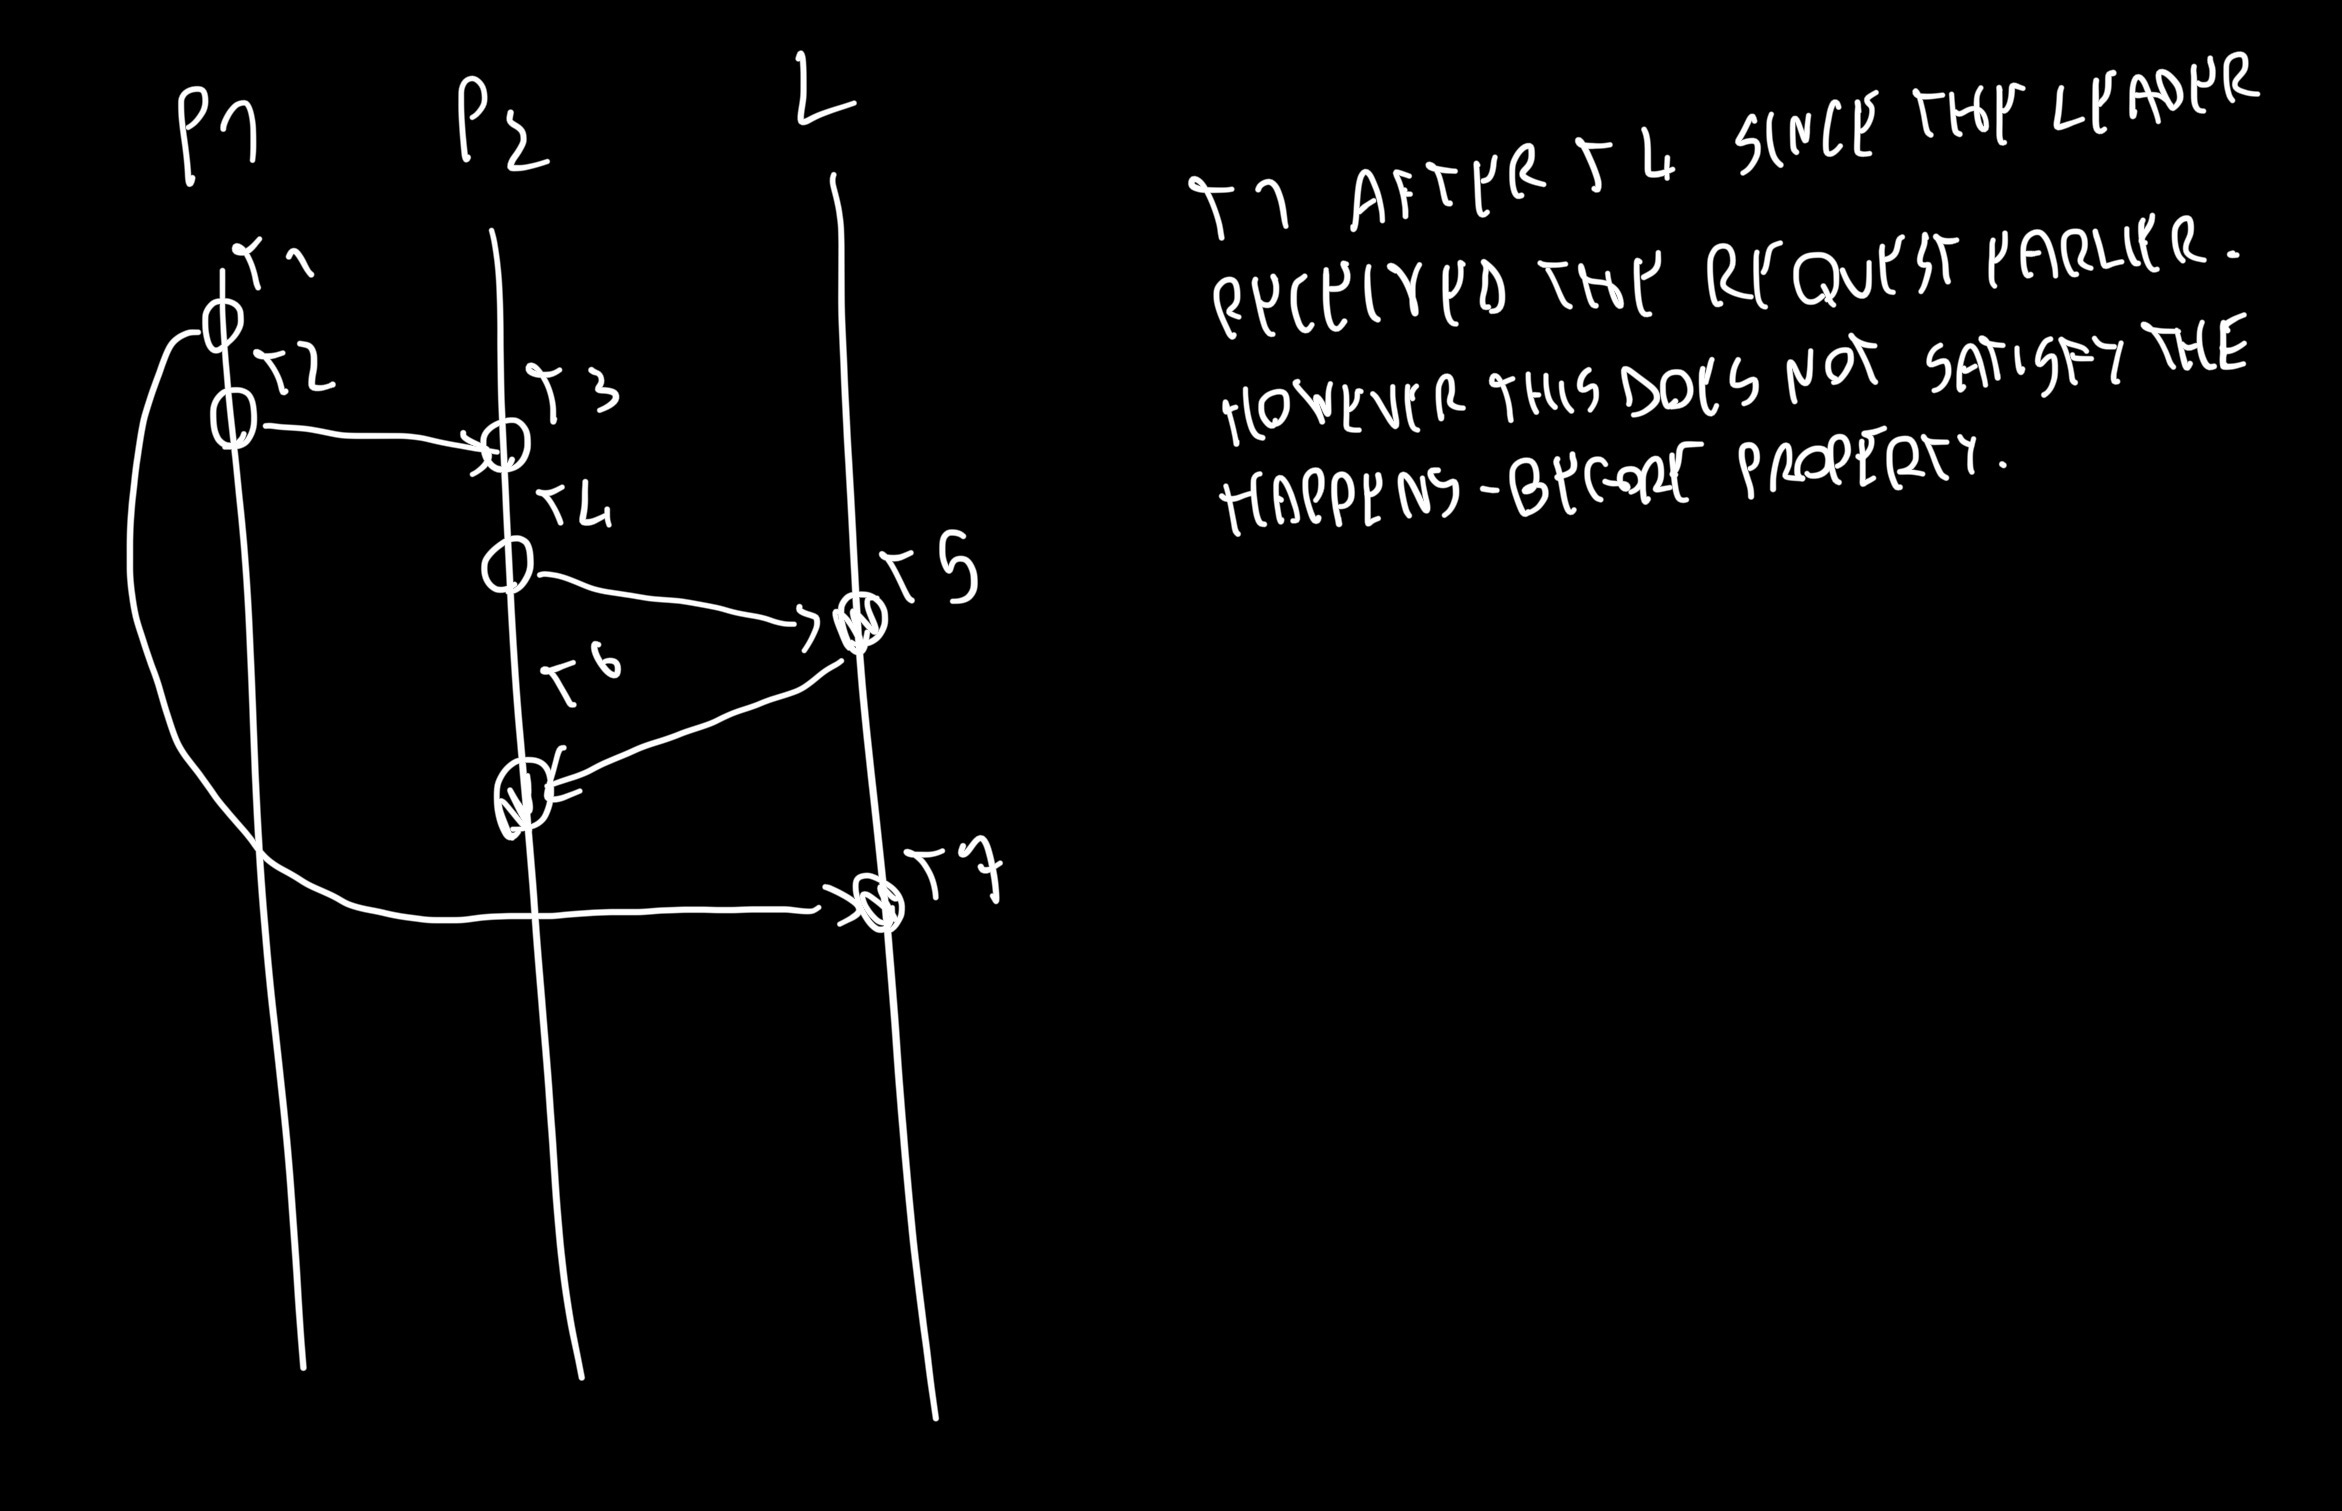 P1
P2
L
T1
T2
T3
T4
T5
T6
T7
T1 AFTER T4 SINCE THE LEADER
RECEIVED THE REQUEST EARLIER.
HOWEVER THIS DOES NOT SATISFY THE
HAPPENS-BEFORE PROPERTY.